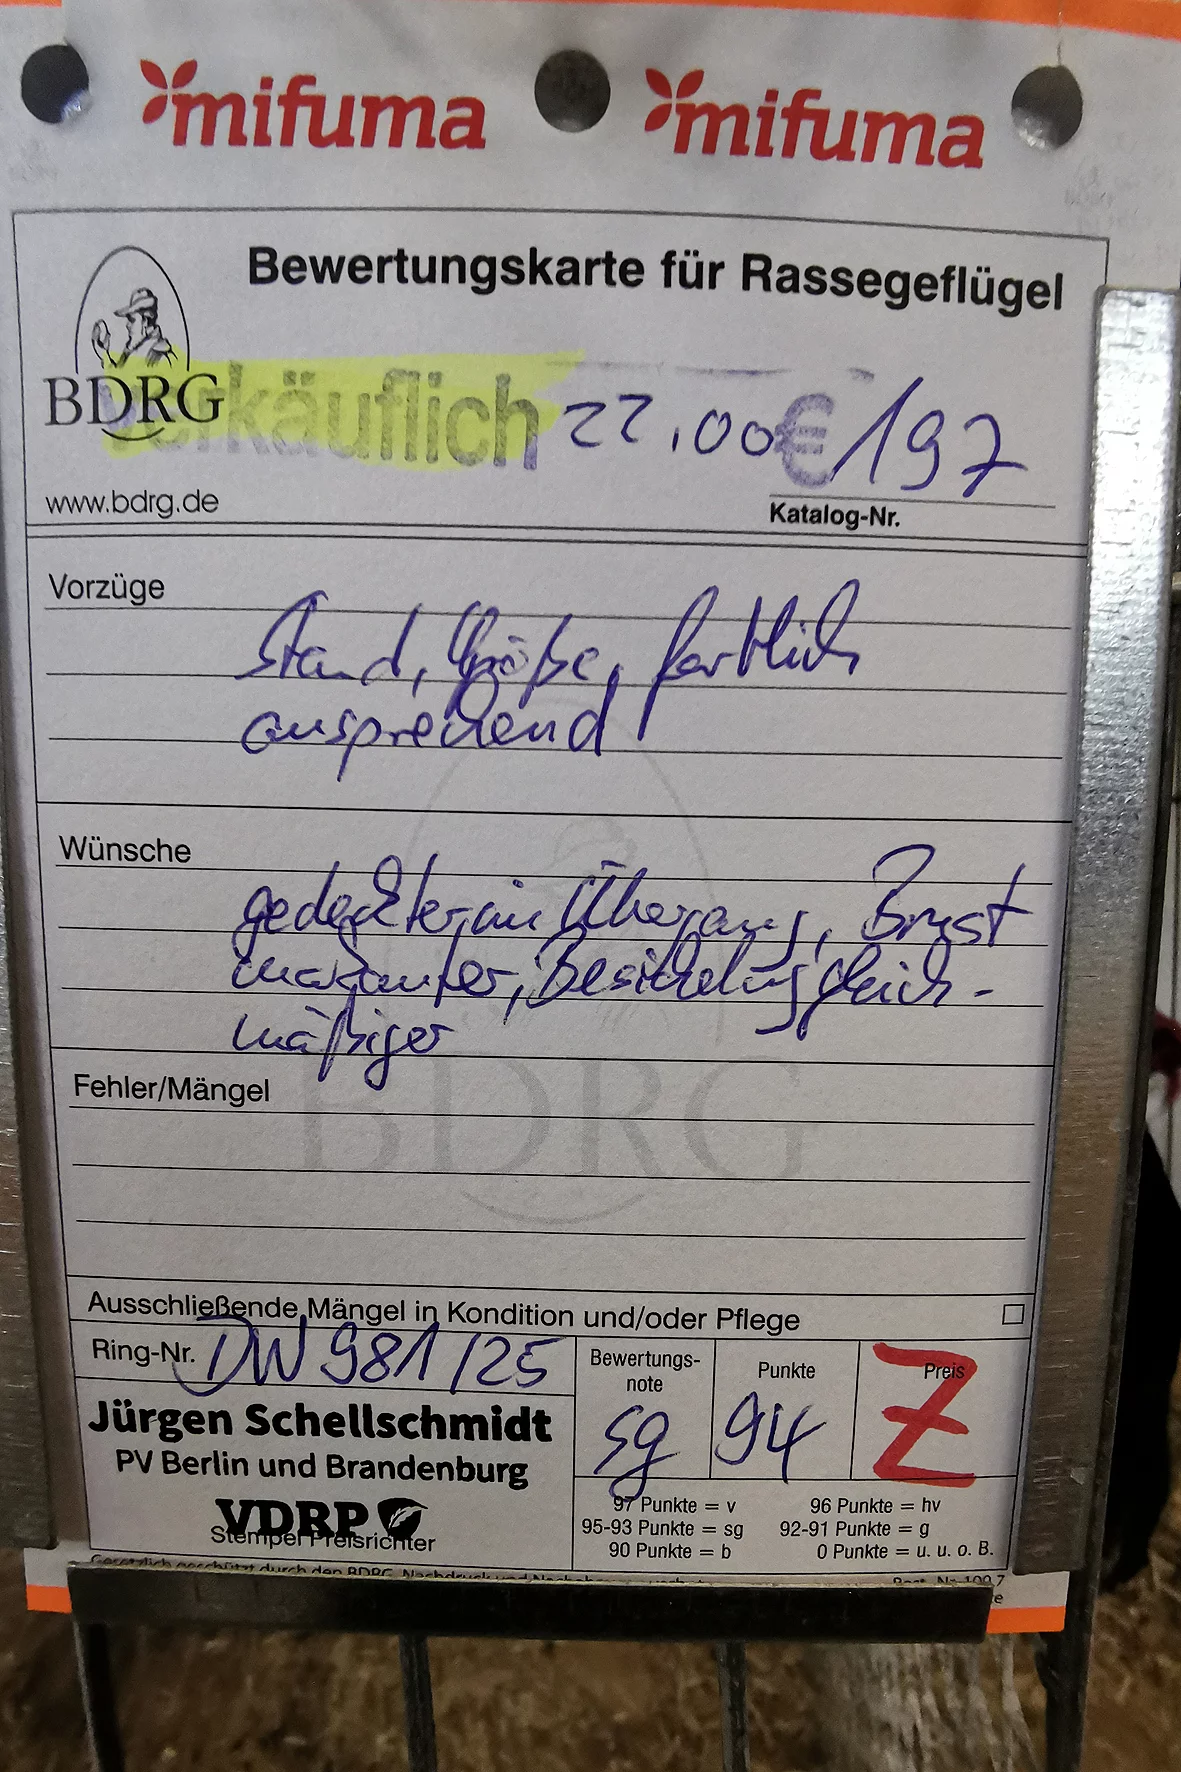 mifuma mifuma
Bewertungskarte für Rassegeflügel
BDRG
verkäuflich 22,00 € 197
www.bdrg.de
Katalog-Nr.
Vorzüge
Stand, Größe, farblich
ansprechend
Wünsche
gedeckter im Übergang, Brust
markanter, Besichelung gleich-
mäßiger
BDRG
Fehler/Mängel
Ausschließende Mängel in Kondition und/oder Pflege
Ring-Nr. DW 981/25
Bewertungs-
note
sg
Punkte
94
Preis
Z
Jürgen Schellschmidt
PV Berlin und Brandenburg
VDRP
Stempel Preisrichter
97 Punkte = v 96 Punkte = hv
95-93 Punkte = sg 92-91 Punkte = g
90 Punkte = b 0 Punkte = u. u. o. B.
Gesetzlich geschützt durch den BDRG,